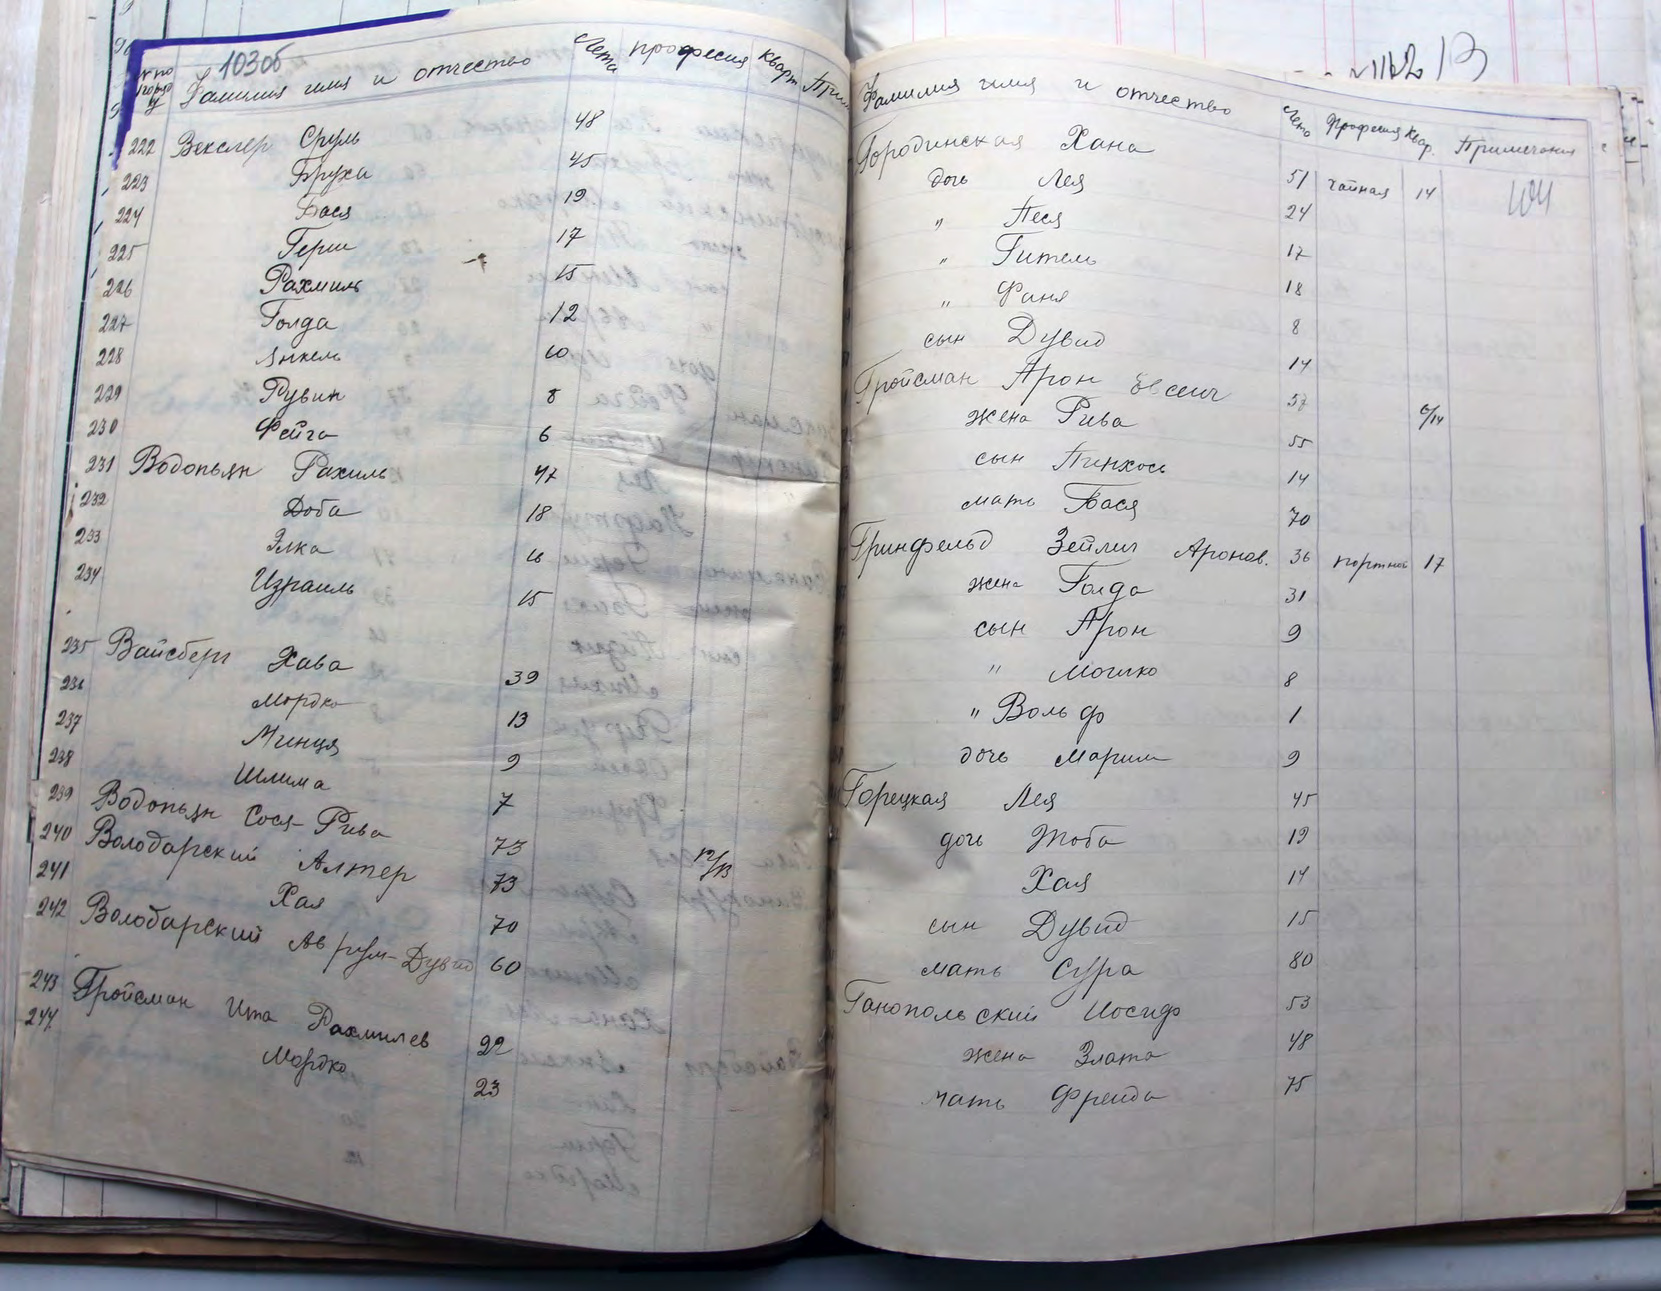 103об
Фамилия имя и отчество Лета професия кварт Прим
222 Векслер Сруль 48
223 Бруха 45
224 Бася 19
225 Герш 17
226 Рахмиль 15
227 Голда 12
228 Янкель 10
229 Рувин 8
230 Фейга 6
231 Водопьян Рахиль 47
232 Доба 18
233 Элка 16
234 Израиль 15
235 Вайсберг Хава 39
236 Мордко 13
237 Минця 9
238 Шлима 7
239 Водопьян Сося-Рива 73
240 Володарский Алтер 73 12/13
241 Хая 70
242 Володарский Аврум-Дувид 60
243 Гройсман Ита Рахмилев 22
244 Мордко 23
Фамилия имя и отчество Лета Професия Квар. Примечания
Городинская Хана 51 чайная 14
104
дочь Лея 24
" Песя 17
" Гитель 18
" Фаня 8
сын Дувид 14
Гройсман Арон Евсеич 57 6/14
жена Рива 55
сын Пинхос 14
мать Бася 70
Гринфельд Зейлиг Аронов. 36 портной 17
жена Голда 31
сын Арон 9
" Мошко 8
" Вольф 1
дочь Марим 9
Горецкая Лея 45
дочь Тоба 19
Хая 14
сын Дувид 15
мать Сура 80
Ганопольский Иосиф 53
жена Злата 48
мать Фрейда 75